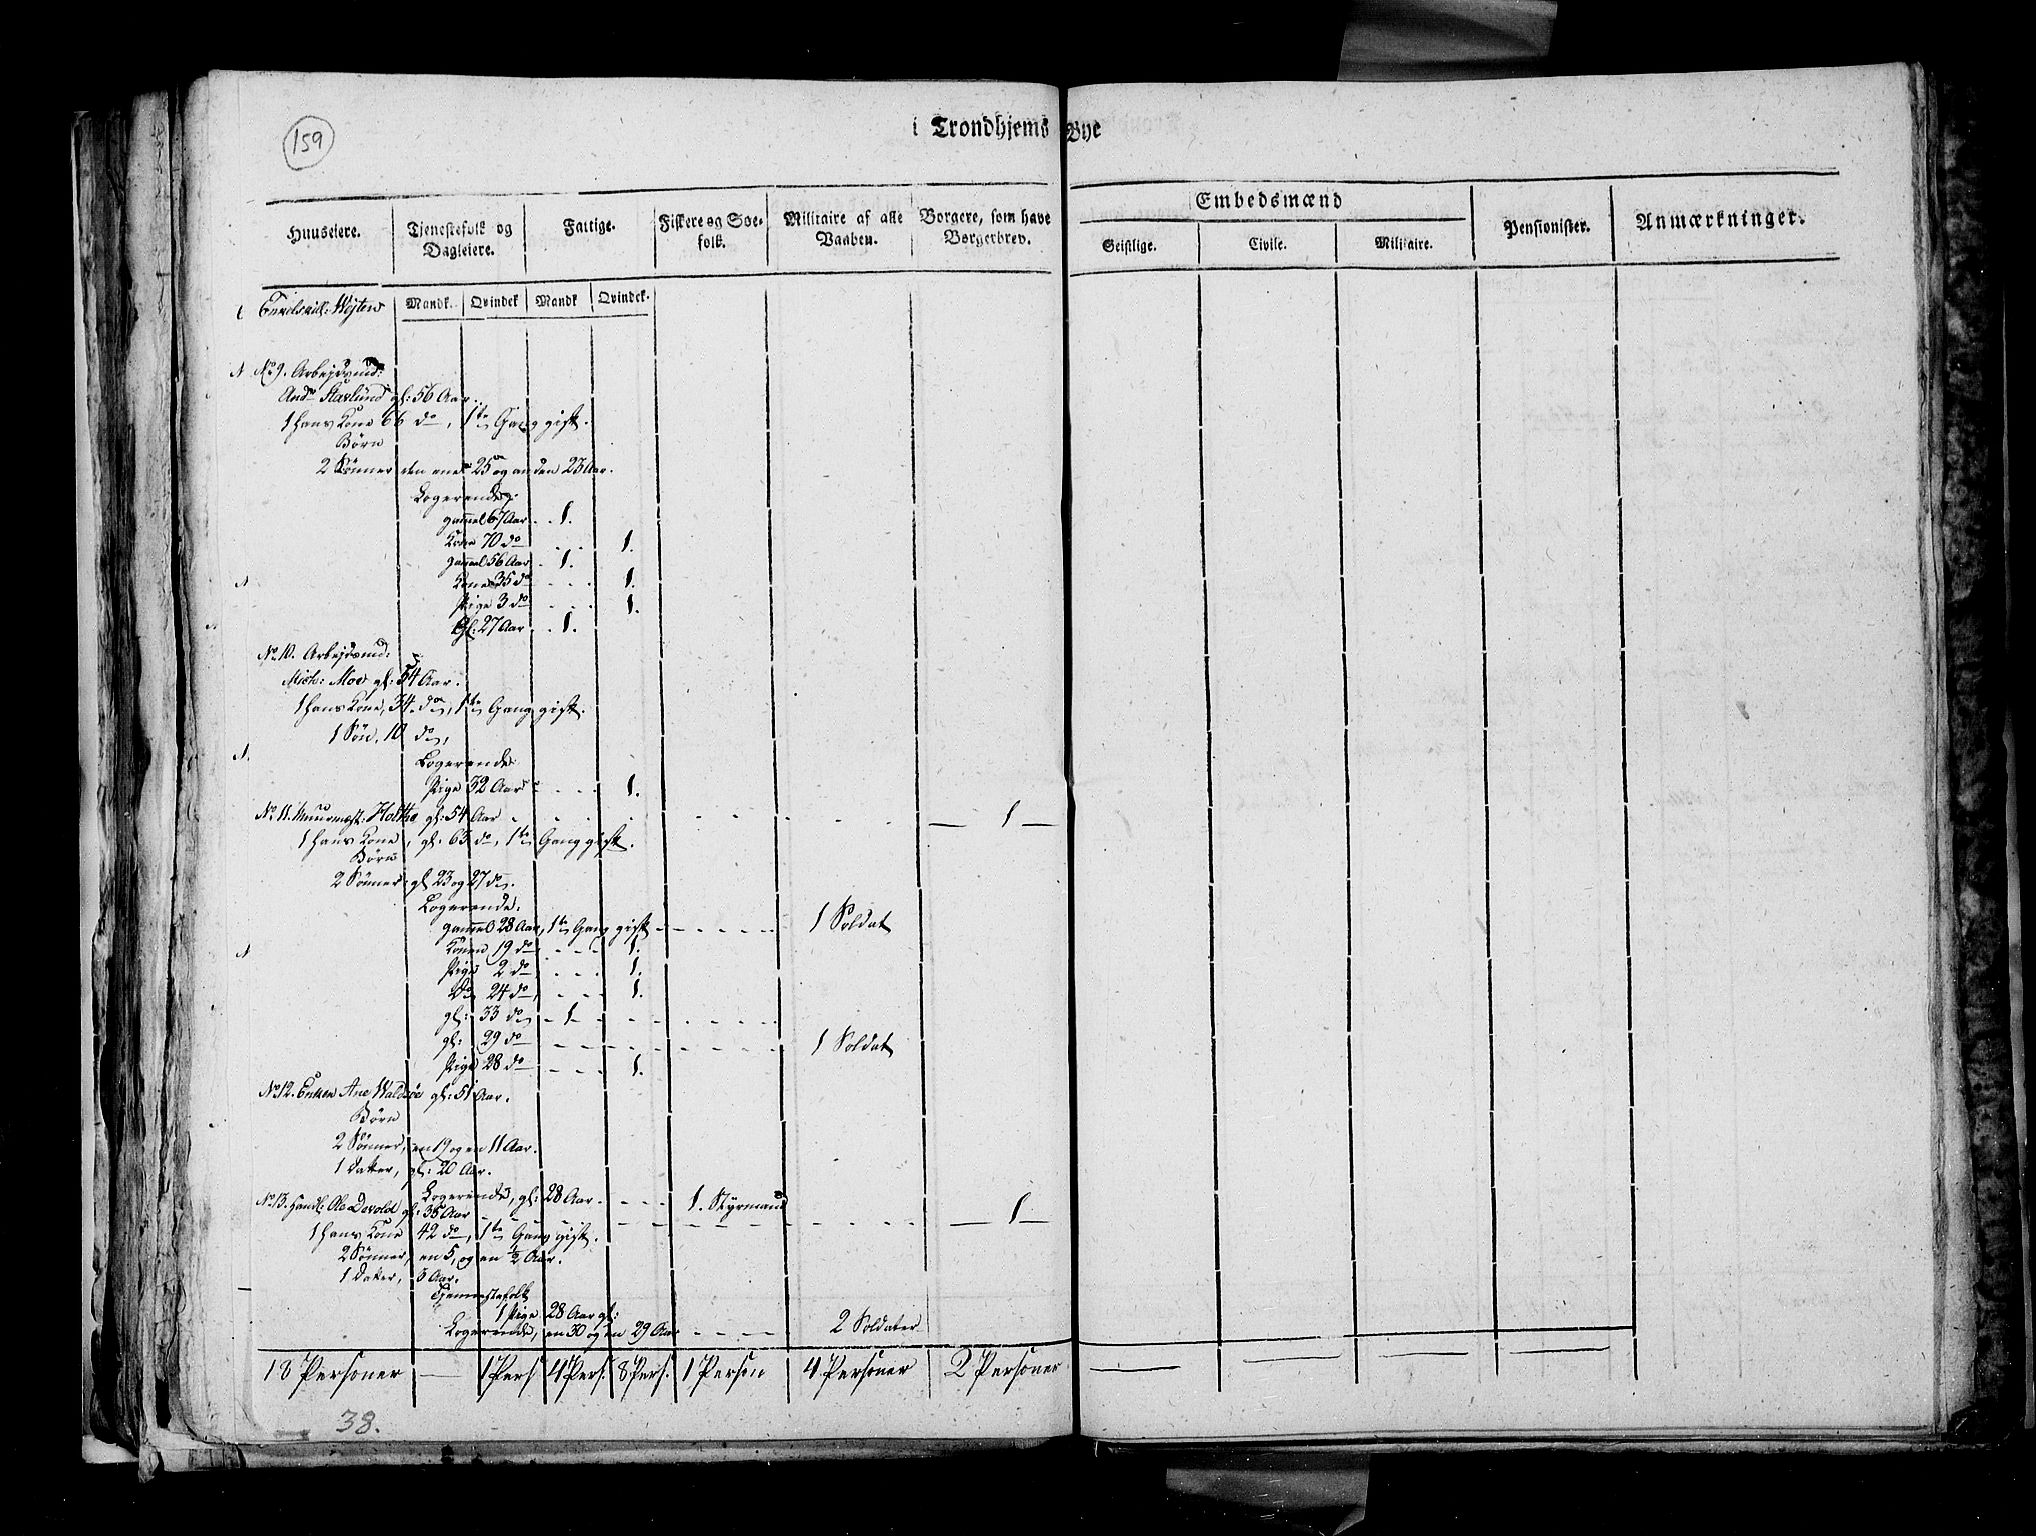 159
i Trondhjems Bye
Huuseiere. Tjenestefolk og Dagleiere. Fattige. Fiskere og Søefolk. Militaire af alle Vaaben. Borgere, som have Borgerbrev. Embedsmænd Pensionister. Anmærkninger.
Geistlige. Civile. Militaire.
Mandk. Qvindek Mandk Qvindek.
No 9. Arbejdsmd:
And: Stavlund gl: 56 Aar.
1 hans Kone 66 do, 1te Gang gift.
Børn
2 Sønner den ene 25 og anden 23 Aar.
Logerende:
gammel 67 Aar - - 1.
Kone 70 do - - 1.
gammel 56 Aar - 1.
Kone 35 do - - - 1.
Pige 3 do - - - 1.
Gl: 27 Aar - - 1.
No 10. Arbejdsmd:
Mich: Moe gl: 54 Aar.
1 hans Kone, 34 do, 1te Gang gift.
1 Søn, 10 do,
Logerende
Pige 32 Aar - - - 1.
No 11. Muurmest: Holthe gl: 54 Aar - - - 1 -
1 hans Kone, gl: 63 do, 1te Gang gift.
Børn
2 Sønner gl 23 og 27 do.
Logerende.
gammel 28 Aar, 1te Gang gift - - - - - 1 Soldat
Konen 19 do, - - - 1.
Pige 2 do, - - - 1.
Do 24 do, - - - 1.
gl: 33 do - 1 - - - - - -
gl: 29 do - - - - - - - - 1 Soldat
Pige 28 do - - - 1.
No 12. Enken Ane Waldsøe gl: 51 Aar.
Børn
2 Sønner, en 19 og en 11 Aar.
1 Datter, gl: 20 Aar.
Logerende, gl: 28 Aar. - - - 1. Styrmand
No 13. Handl: Ole Dovold gl: 38 Aar - - - 1 -
1 hans Kone 42 do, 1te Gang gift.
2 Sønner, en 5, og en 1/2 Aar.
1 Datter, 8 Aar.
Tjennestefolk
1 Pige 28 Aar gl:
Logerende, en 30 og en 29 Aar - - - - 2 Soldater
18 Personer — 1 Pers 4 Pers. 8 Pers. 1 Person 4 Personer 2 Personer — — — —
38.